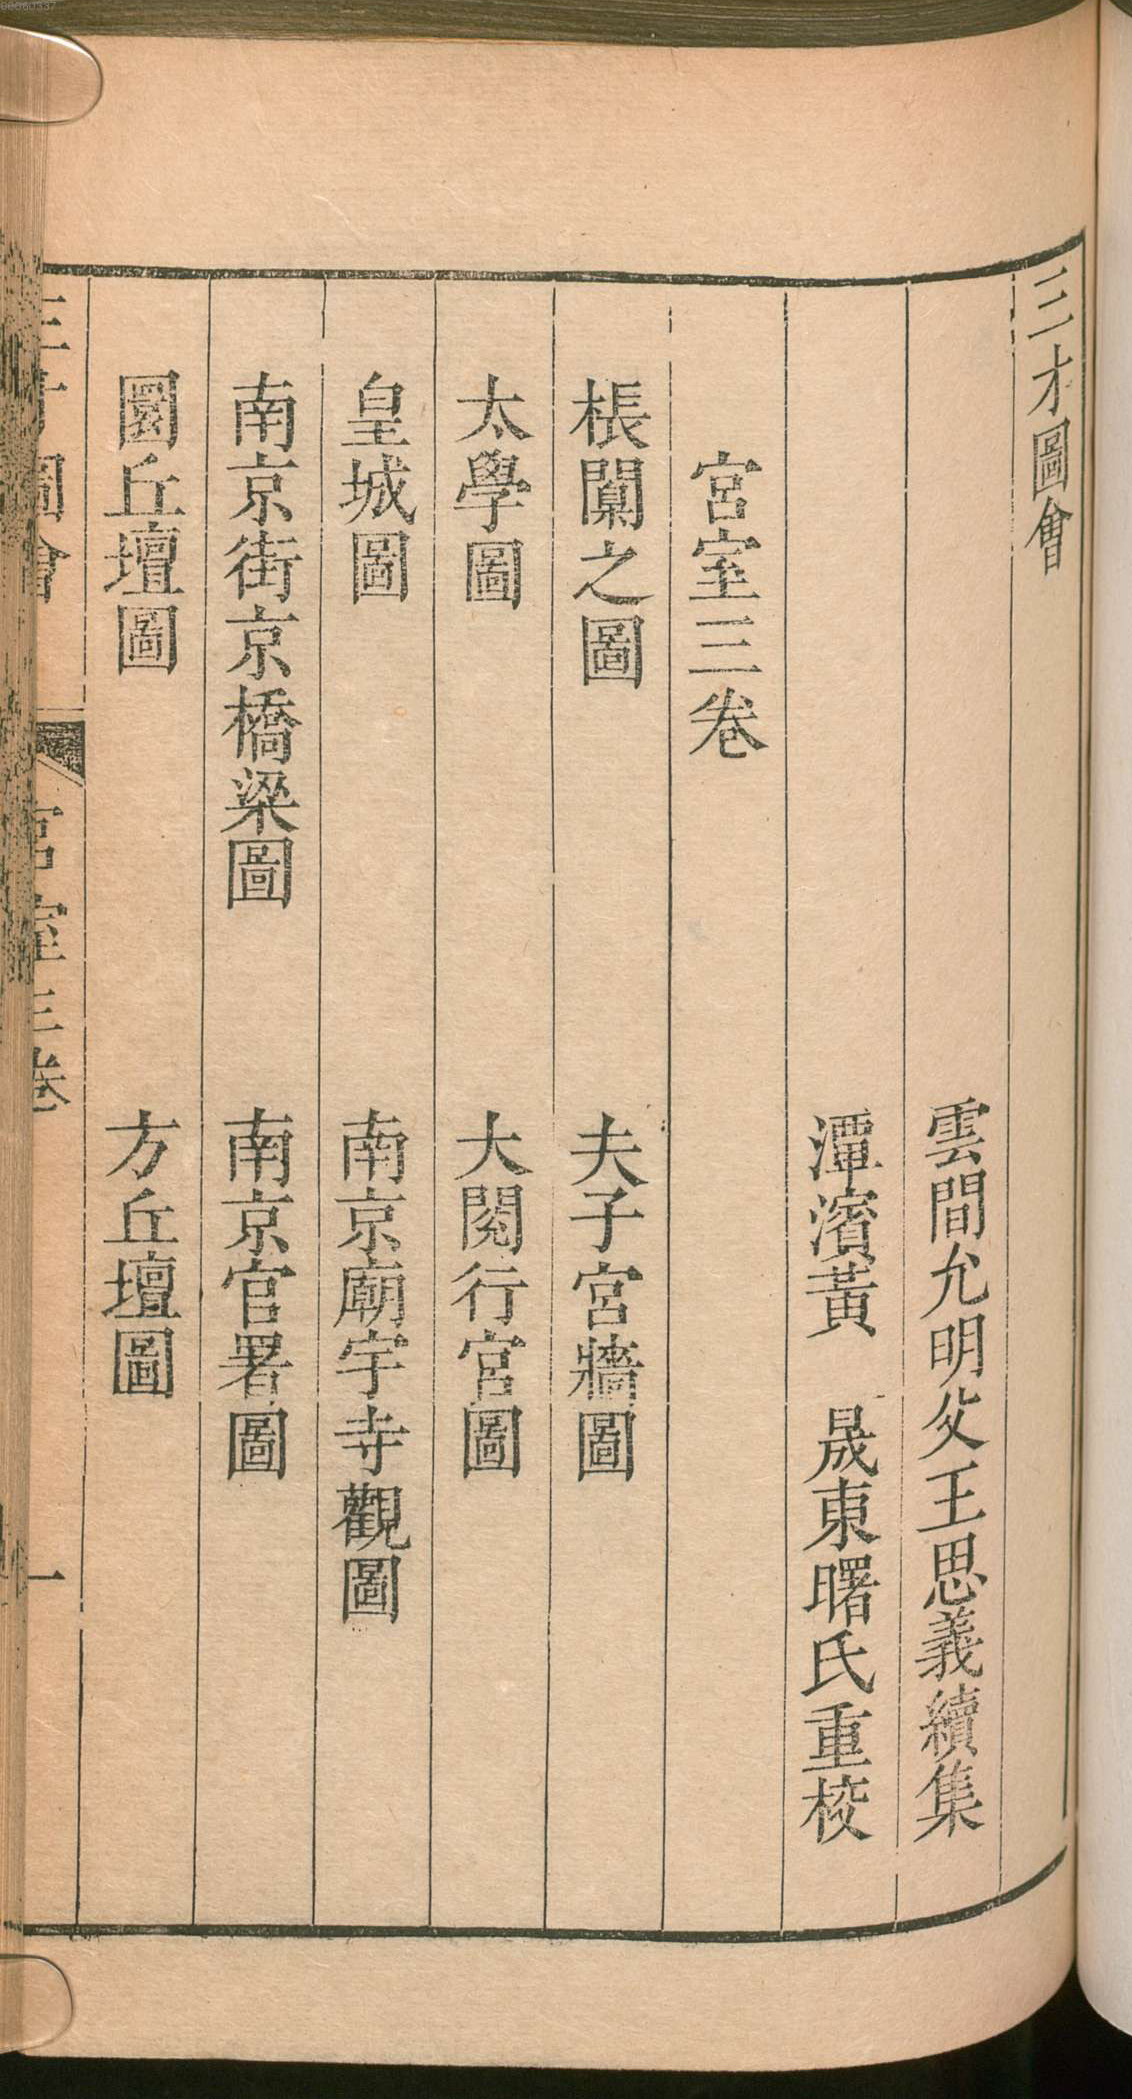 三才圖會
雲間允明父王思義續集
潭濱黃 晟東曙氏重校
宮室三卷
棖闑之圖 夫子宮牆圖
太學圖 大閱行宮圖
皇城圖 南京廟宇寺觀圖
南京街京橋梁圖 南京官署圖
圜丘壇圖 方丘壇圖
三才圖會 宮室三卷 一
00060337